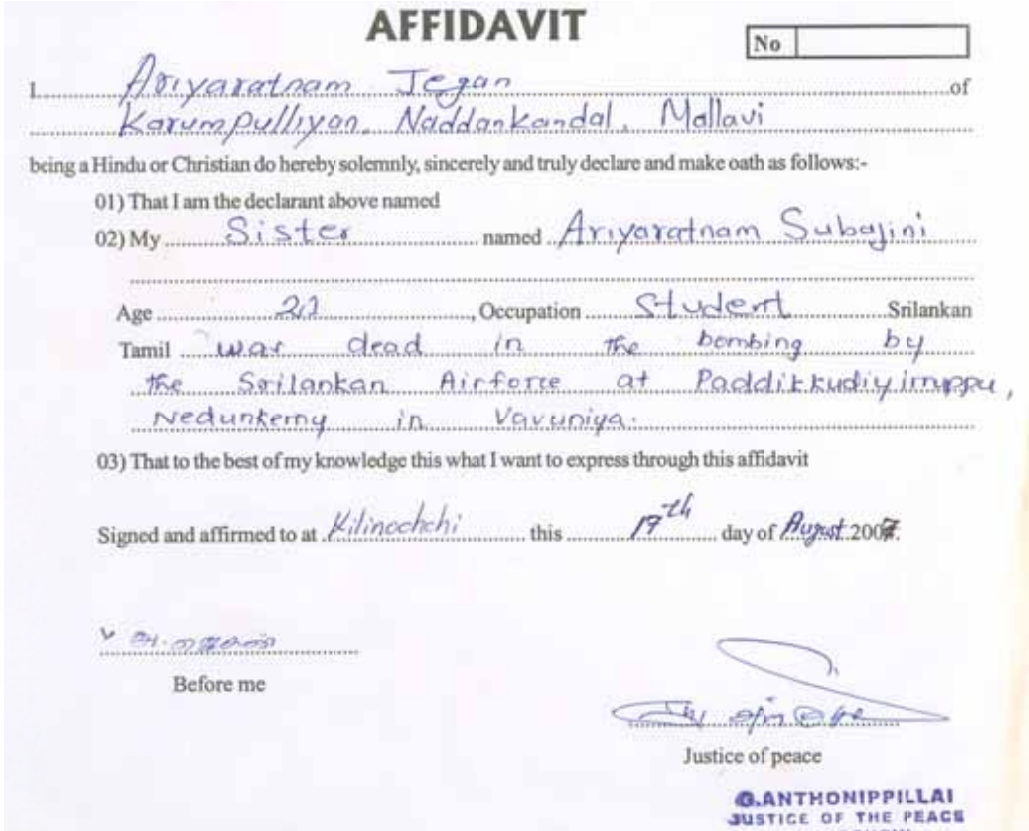 AFFIDAVIT
No
I Ariyaratnam Jegan of
Karumpulliyan, Naddankandal, Mallavi
being a Hindu or Christian do hereby solemnly, sincerely and truly declare and make oath as follows:-
01) That I am the declarant above named
02) My Sister named Ariyaratnam Subajini
Age 21, Occupation Student Srilankan
Tamil was dead in the bombing by
the Srilankan Airforce at Paddikkudiyiruppu,
Nedunkerny in Vavuniya.
03) That to the best of my knowledge this what I want to express through this affidavit
Signed and affirmed to at Kilinochchi this 19th day of August 2007.
அ. ஜெகன்
Before me
Justice of peace
G.ANTHONIPPILLAI
JUSTICE OF THE PEACE